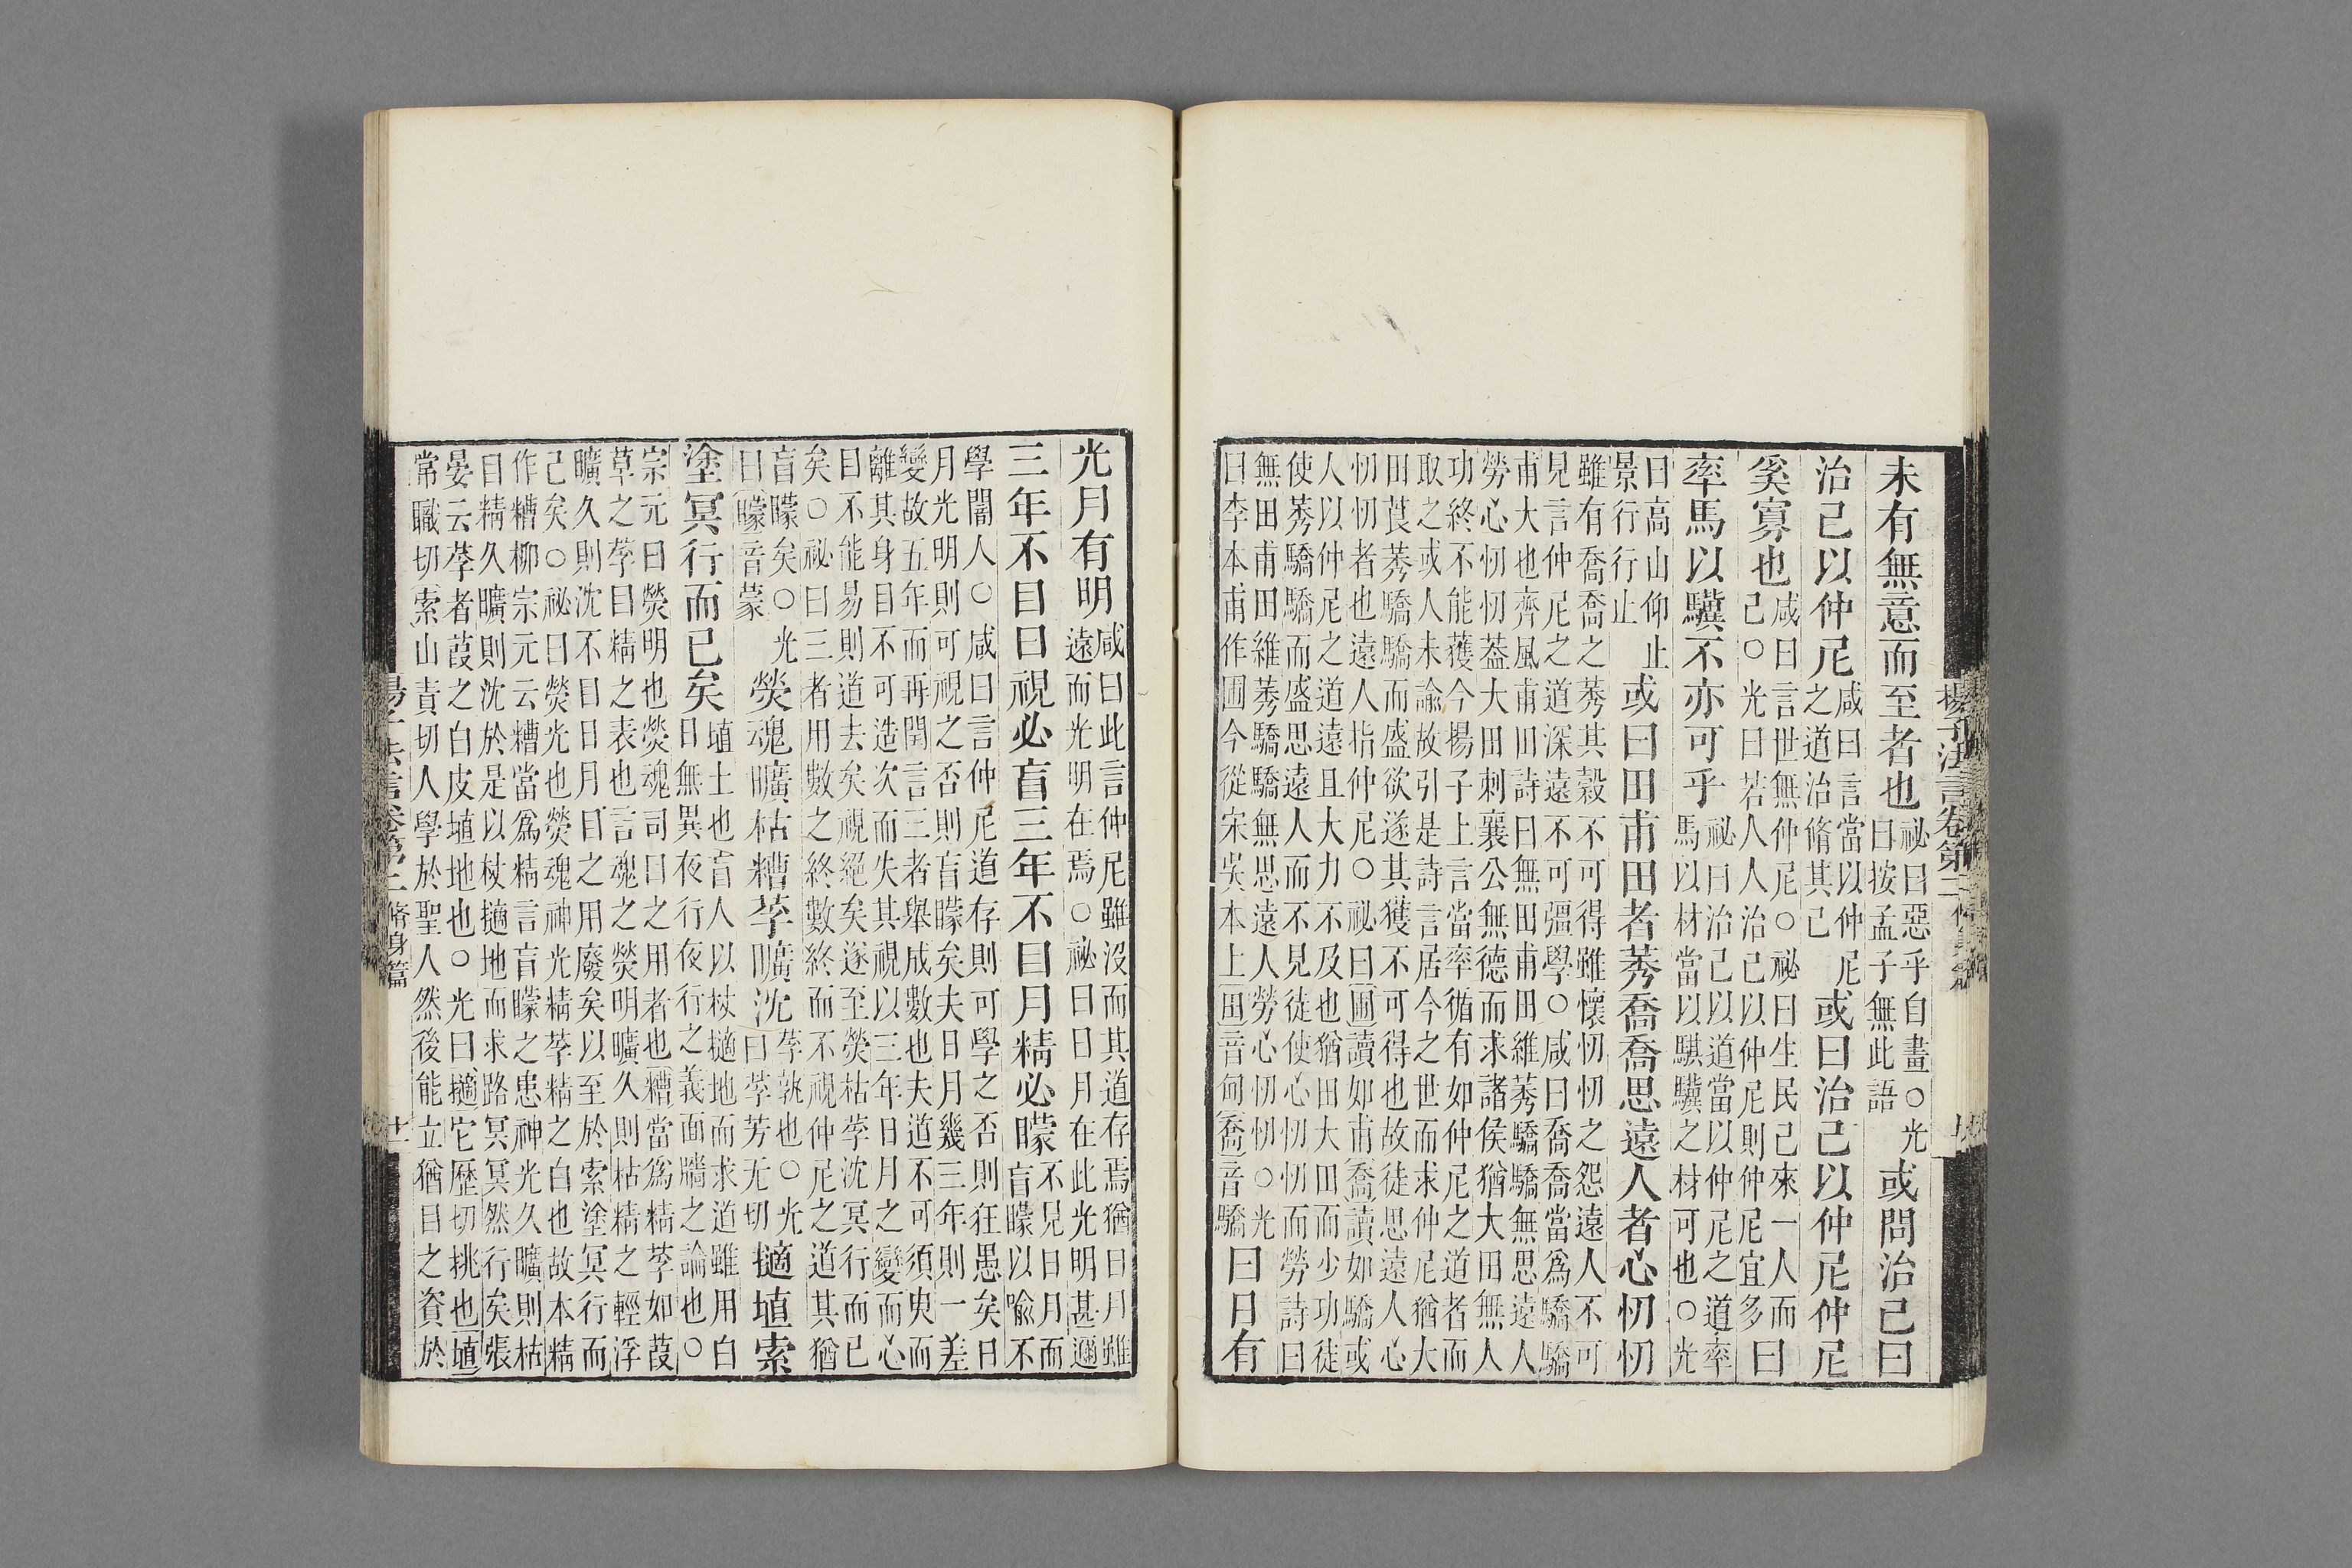 未有無意而至者也祕曰惡乎自畫○光曰按孟子無此語或問治己曰
治己以仲尼咸曰言當以仲尼之道治脩其己或曰治己以仲尼仲尼
奚寡也咸曰言世無仲尼○祕曰生民已來一人而己○光曰若人人治己以仲尼則仲尼宜多曰
率馬以驥不亦可乎祕曰治己以道當以仲尼之道率馬以材當以騏驥之材可也○光
曰高山仰止景行行止或曰田甫田者莠喬喬思遠人者心忉忉
雖有喬喬之莠其穀不可得雖懷忉忉之怨遠人不可
見言仲尼之道深遠不可彊學○咸曰喬喬當爲驕驕
甫大也齊風甫田詩曰無田甫田維莠驕驕無思遠人
勞心忉忉蓋大田刺襄公無德而求諸侯猶大田無人
功終不能獲今揚子上言當率循有如仲尼之道者而
取之或人未諭故引是詩言居今之世而求仲尼猶大
田莨莠驕驕而盛欲遂其獲不可得也故徒思遠人心
忉忉者也遠人指仲尼○祕曰圃讀如甫喬讀如驕或
人以仲尼之道遠且大力不及也猶田大田而少功徒
使莠驕驕而盛思遠人而不見徒使心忉忉而勞詩曰
無田甫田維莠驕驕無思遠人勞心忉忉○光
曰李本甫作圃今從宋吳本上田音甸喬音驕曰日有
揚子法言卷第二 脩身篇
光月有明咸曰此言仲尼雖沒而其道存焉猶日月雖遠而光明在焉○祕曰日月在此光明甚邇
三年不目日視必盲三年不目月精必矇不見日月而盲矇以喩不
學闇人○咸曰言仲尼道存則可學之否則狂愚矣日
月光明則可視之否則盲矇矣夫日月幾三年則一差
變故五年而再閏言三者舉成數也夫道不可須臾而
離其身目不可造次而失其視以三年日月之變而心
目不能易則道去矣視絕矣遂至熒枯莩沈冥行而已
矣○祕曰三者用數之終數終而不視仲尼之道其猶
盲矇矣○光曰矇音蒙熒魂曠枯糟莩曠沈莩孰也○光曰莩芳无切擿埴索
塗冥行而已矣埴土也盲人以杖擿地而求道雖用白日無異夜行夜行之義面牆之論也○
宗元曰熒明也熒魂司目之用者也糟當爲精莩如葭
草之莩目精之表也言魂之熒明曠久則枯精之輕浮
曠久則沈不目日月目之用廢矣以至於索塗冥行而
己矣○祕曰熒光也熒魂神光精莩精之白也故本精
作糟柳宗元云糟當爲精言盲矇之患神光久曠則枯
目精久曠則沈於是以杖擿地而求路冥冥然行矣張
晏云莩者葭之白皮埴地也○光曰擿它歷切挑也埴
常職切索山責切人學於聖人然後能立猶目之資於
揚子法言卷第二 脩身篇 十二